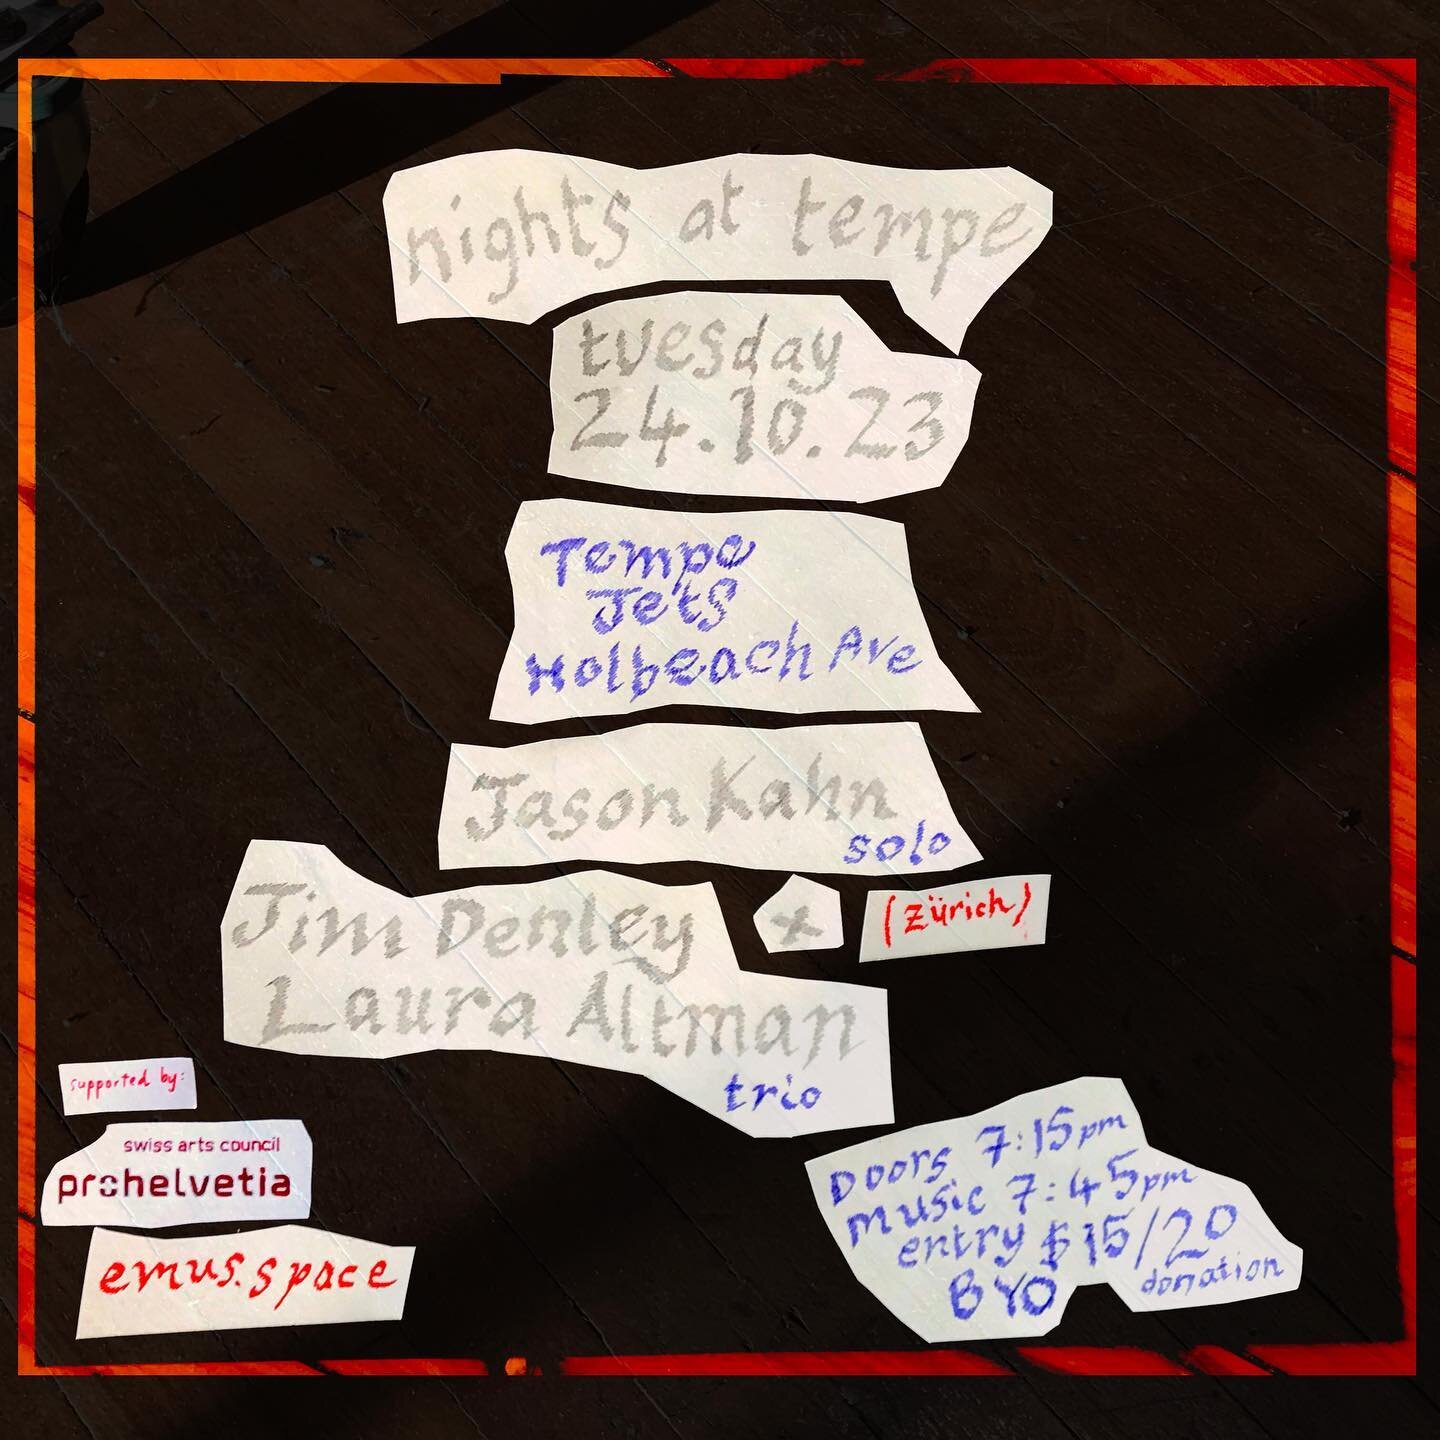 nights at tempe
tuesday
24.10.23
Tempe
Jets
Holbeach Ave
Jason Kahn
solo
Jim Denley + (Zürich)
Laura Altman
trio
supported by:
swiss arts council
prohelvetia
emus.space
Doors 7:15pm
music 7:45pm
entry $15/20
donation
BYO